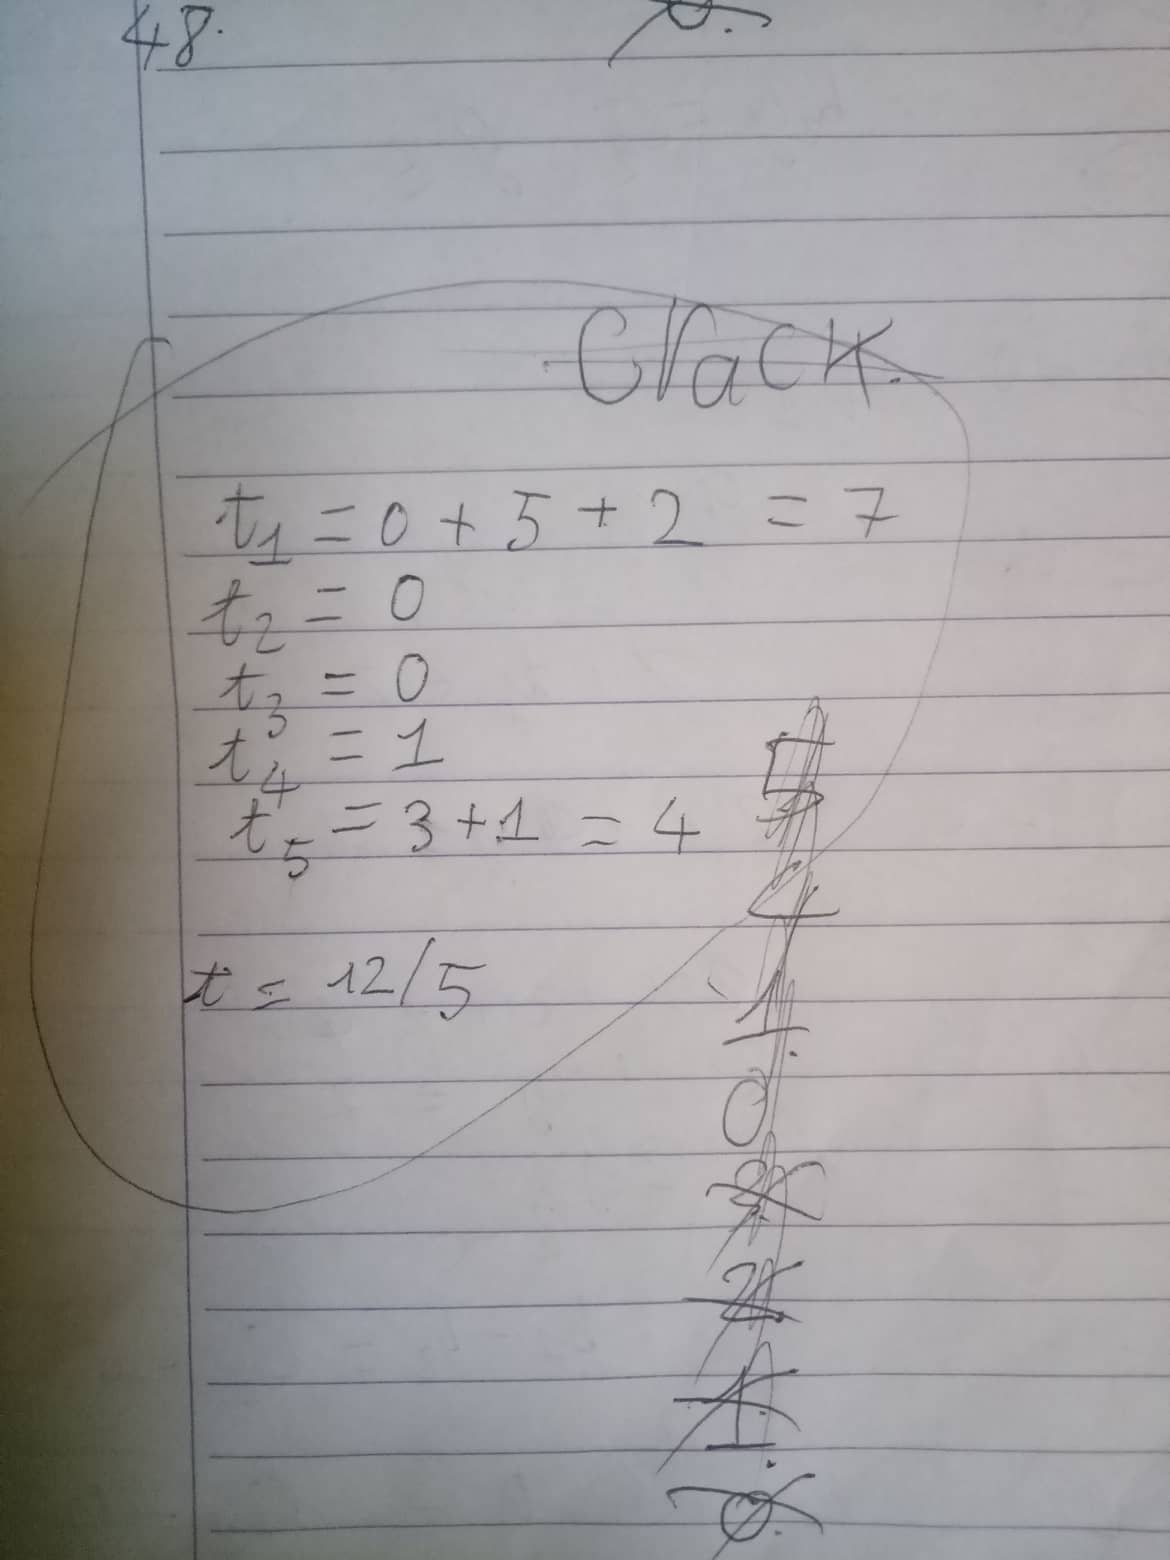 48.
Crack.
t1 = 0 + 5 + 2 = 7
t2 = 0
t3 = 0
t4 = 1
t5 = 3 + 1 = 4
5
4
1.
t = 12/5
0
2
1.
0.